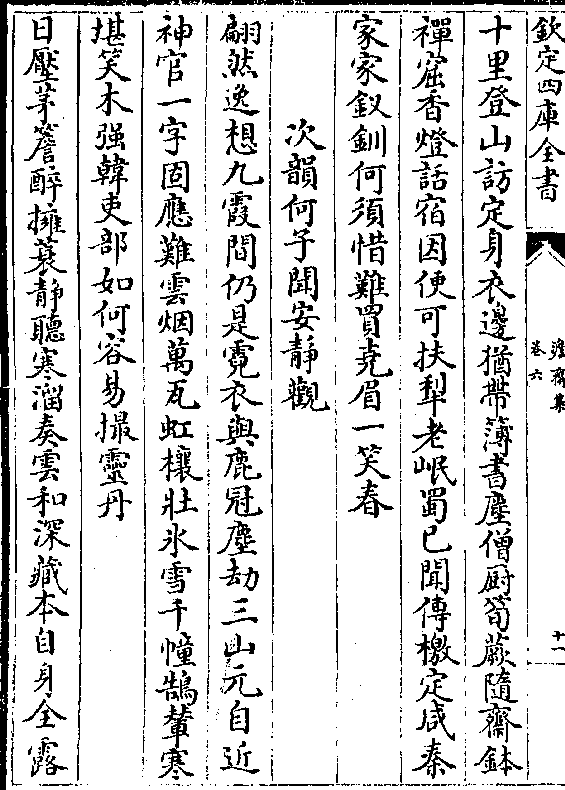 欽定四庫全書
澹齋集
卷六
十一
十里登山訪定身衣邊猶帶簿書塵僧厨筍蕨隨齋鉢
禪窟香燈話宿因便可扶犁老岷蜀已聞傳檄定咸秦
家家釵釧何須惜難買堯眉一笑春
次韻何子聞安靜觀
翩然逸想九霞間仍是霓衣與鹿冠塵劫三山元自近
神官一字固應難雲烟萬瓦虹欀壯氷雪千幢鵠輦寒
堪笑木强韓吏部如何容易撮靈丹
日壓茅簷醉擁蓑静聽寒溜奏雲和深藏本自身全露